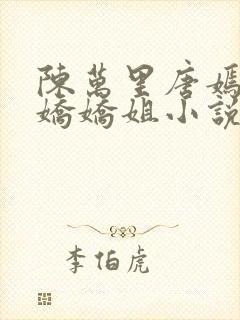 陳萬里唐嫣
嬌嬌姐小說
李伯虎